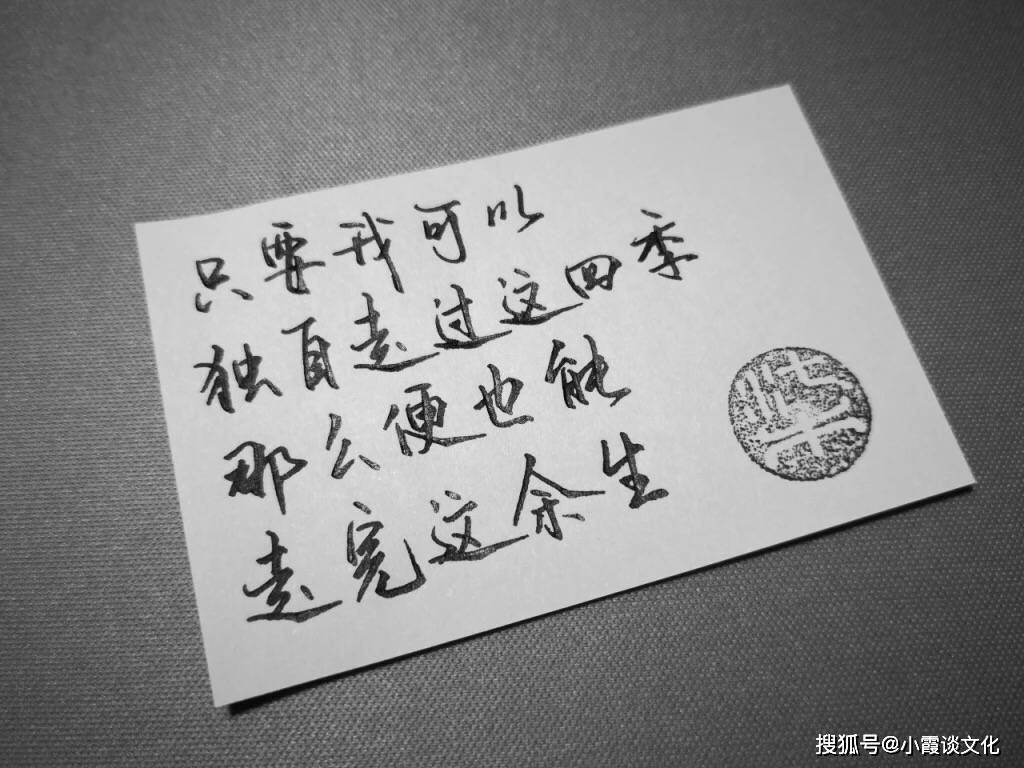 只要我可以
独自走过这四季
那么便也能
走完这余生
搜狐号@小霞谈文化